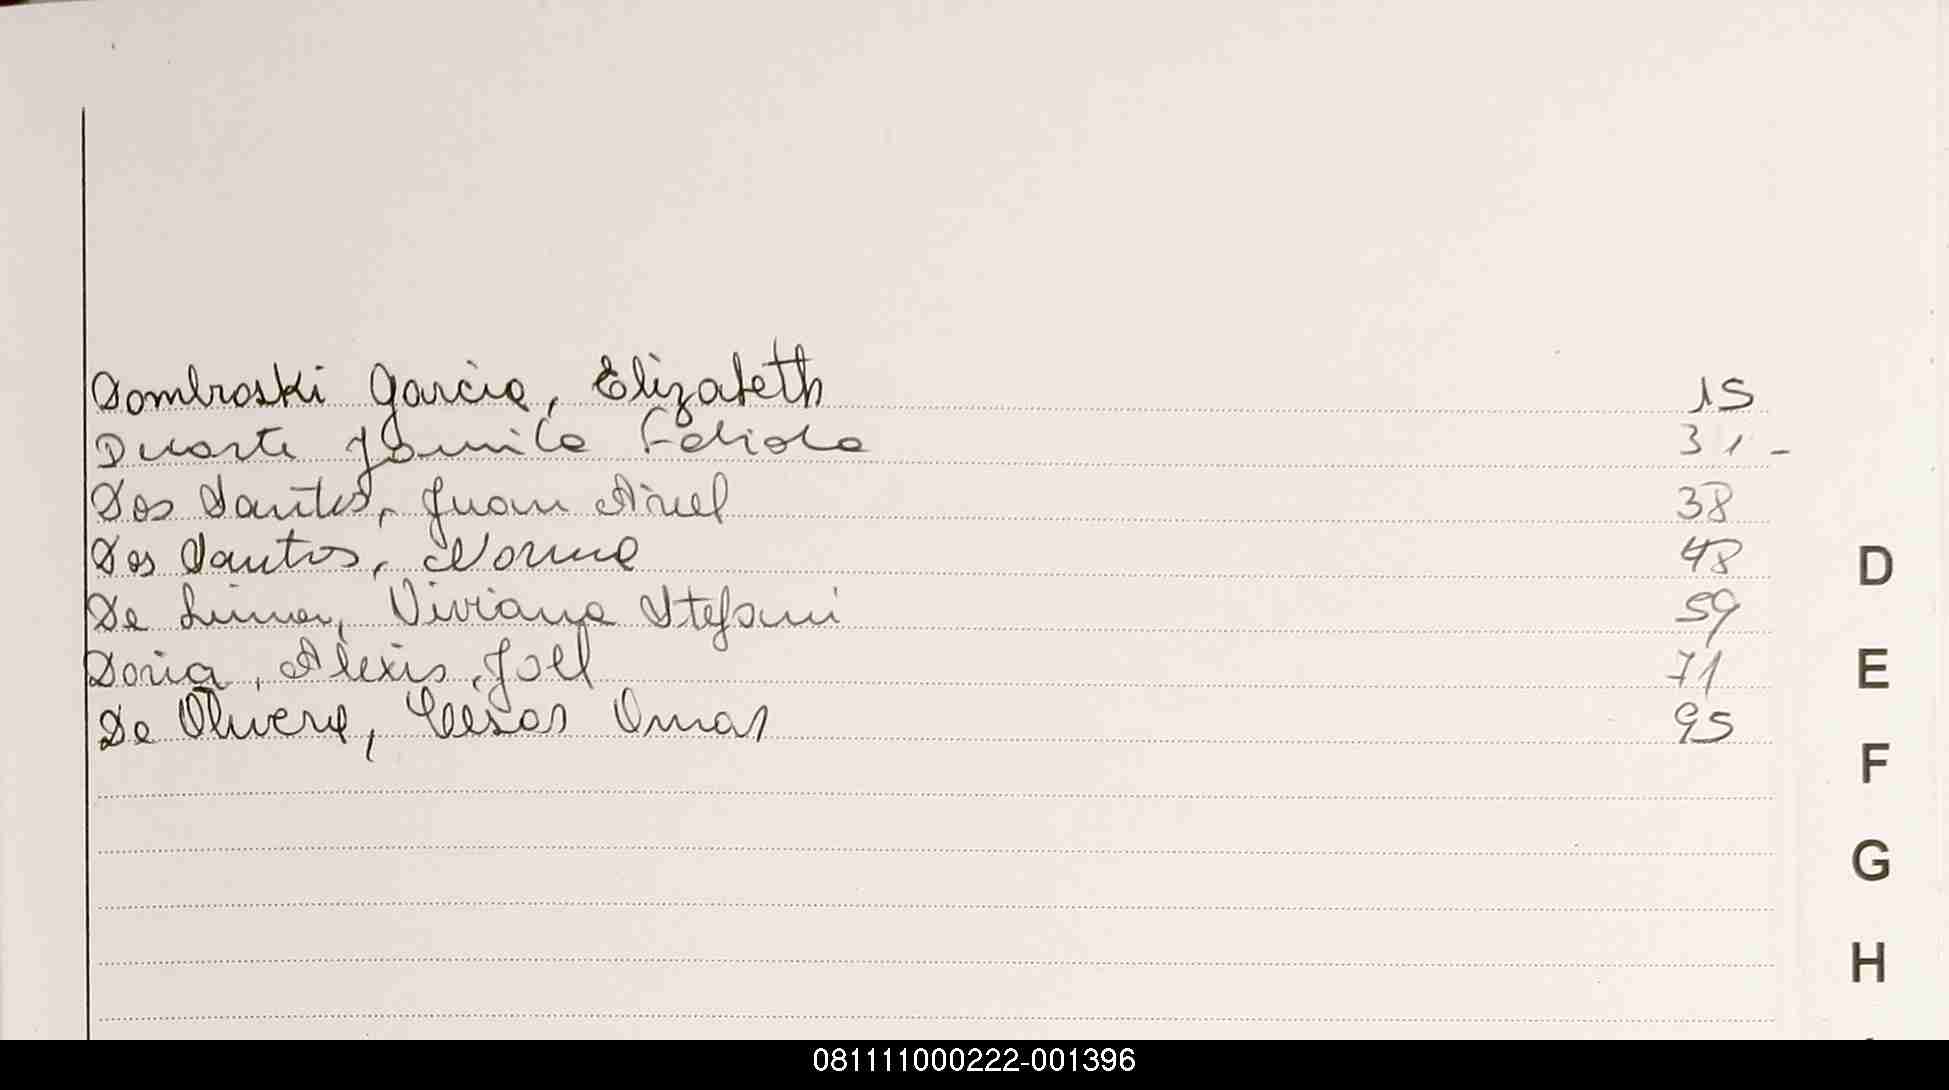 Dombroski Garcia, Elizabeth 15
Duarte Yamila Fabiola 31 -
Dos Santos, Juan Ariel 38
Dos Santos, Norma 48
D
De Lima, Viviana Stefani 59
Doria, Alexis Joel 71
E
De Olivera, Cesar Omar 95
F
G
H
081111000222-001396